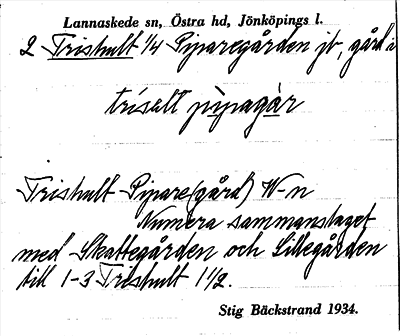 Lannaskede sn, Östra hd, Jönköpings l.
2 Trishult 1/4 Piparegården jb, gård i
trisɛlt pìpagàr
Trishult Pipare(gård) W-n
Numera sammanslaget
med Skattegården och Lillegården
till 1-3 Trishult 1 1/2.
Stig Bäckstrand 1934.